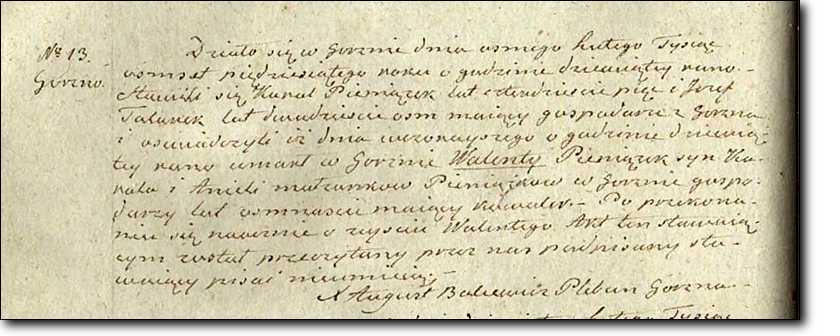 No 13.
Gorzno.
Działo się w Gorznie dnia osmego Lutego Tysiąc
osmset piędziesiątego roku o godzinie dziewiątey rano.-
Stawili się Karol Pieniążek lat czterdzieście pięć i Jozef
lat dwadzieście osm maiący gospodarze z Gorzna
i oswiadczyli iż dnia wczorayszego o godzinie dziewią-
tey rano umarł w Gorznie Walenty Pieniążek syn Ka-
rola i Anieli małżonkow Pieniążkow w Gorznie gospo-
darzy lat osmnaście maiący kawaler.- Po przekona-
niu się naocznie o zeysciu Walentego Akt ten stawaią-
cym został przeczytany przez nas podpisany sta-
waiący pisać nieumieią.-
X August Pleban Gorzna.-
Lutego Tysiąc